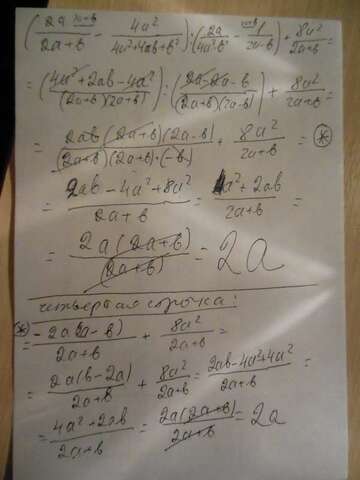 (2a/(2a+b) - 4a²/(4a²+4ab+b²)) : (2a/(4a²-b²) - 1/(2a-b)) + 8a²/(2a+b) =
= ((4a²+2ab-4a²)/((2a+b)(2a+b))) : ((2a-2a-b)/((2a+b)(2a-b))) + 8a²/(2a+b) =
= 2ab(2a+b)(2a-b)/((2a+b)(2a+b)·(-b)) + 8a²/(2a+b) = (*)
= (2ab-4a²+8a²)/(2a+b) = (4a²+2ab)/(2a+b) =
= 2a(2a+b)/(2a+b) = 2a
четвертая строчка:
(*) = -2a(2a-b)/(2a+b) + 8a²/(2a+b) =
= 2a(b-2a)/(2a+b) + 8a²/(2a+b) = (2ab-4a²+4a²)/(2a+b) =
= (4a²+2ab)/(2a+b) = 2a(2a+b)/(2a+b) = 2a